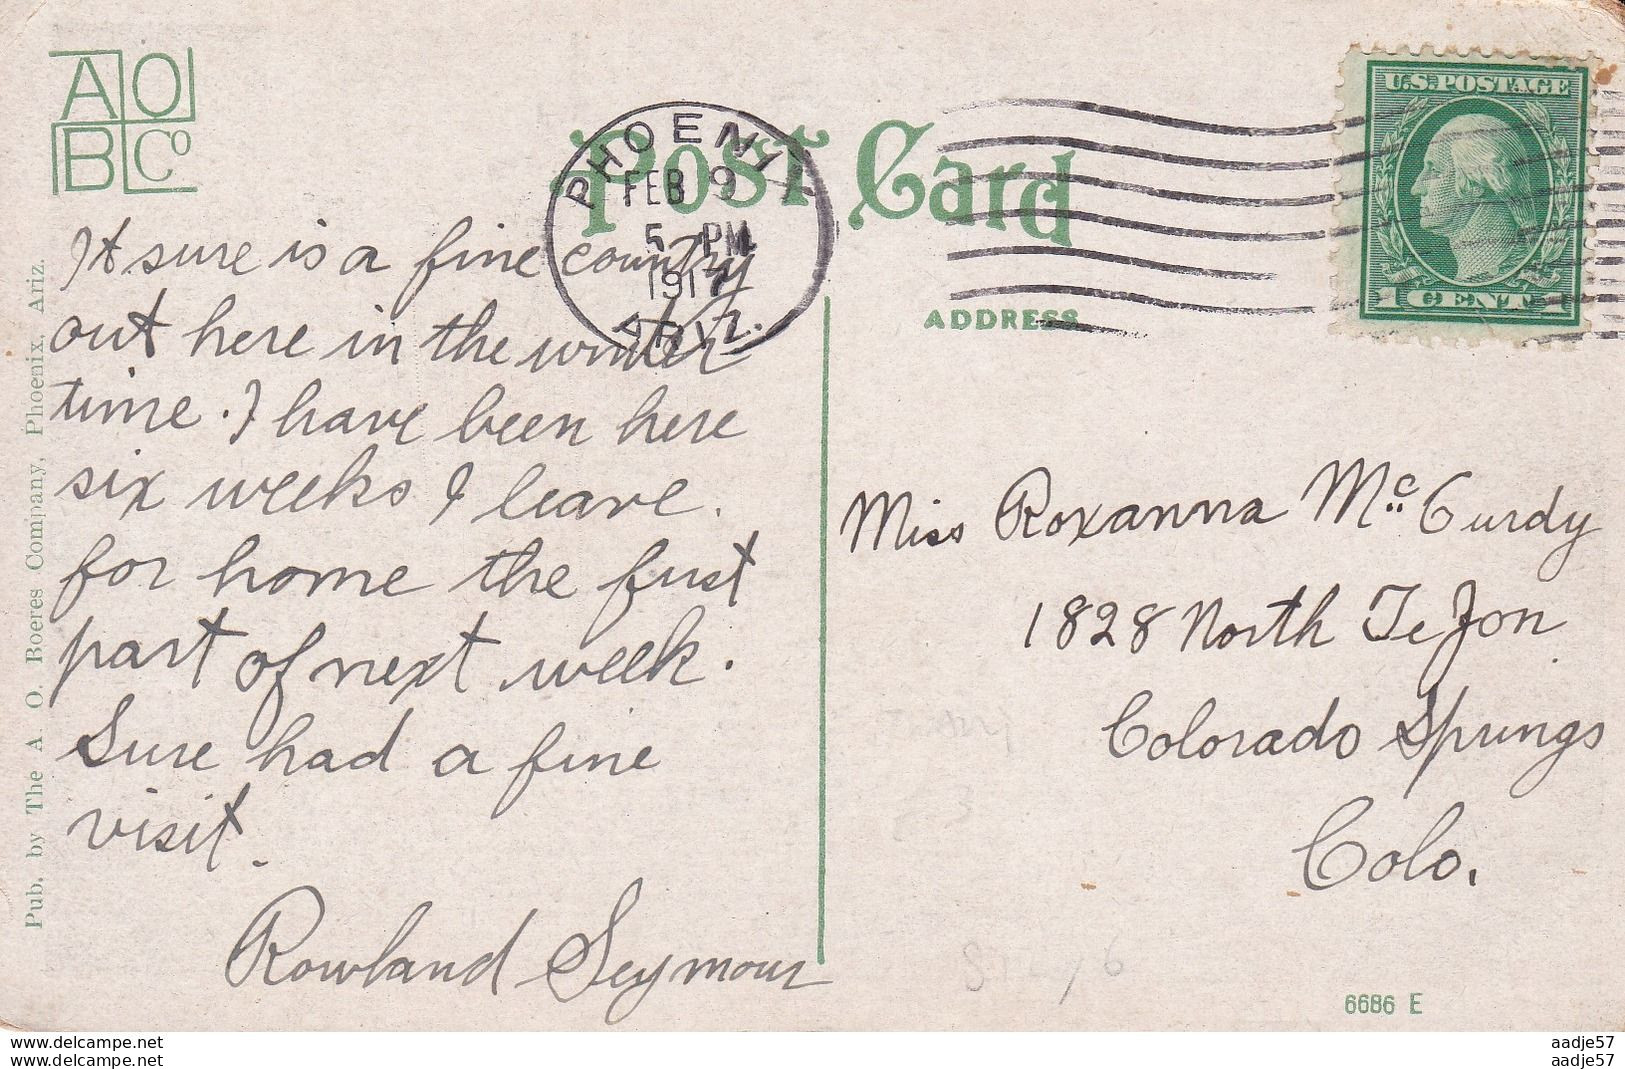 AO
BCo
POST CARD
PHOENIX
FEB 9
5 - PM
1917
ARIZ.
U.S. POSTAGE
1 CENT 1
ADDRESS
It sure is a fine country
out here in the winter
time. I have been here
six weeks I leave.
for home the first
part of next week.
Sure had a fine
visit.
Rowland Seymour
Miss Roxanna Mc Curdy
1828 North TeJon
Colorado Springs
Colo.
Pub. by The A. O. Boeres Company, Phoenix, Ariz.
6686 E
www.delcampe.net
aadje57
www.delcampe.net
aadje57